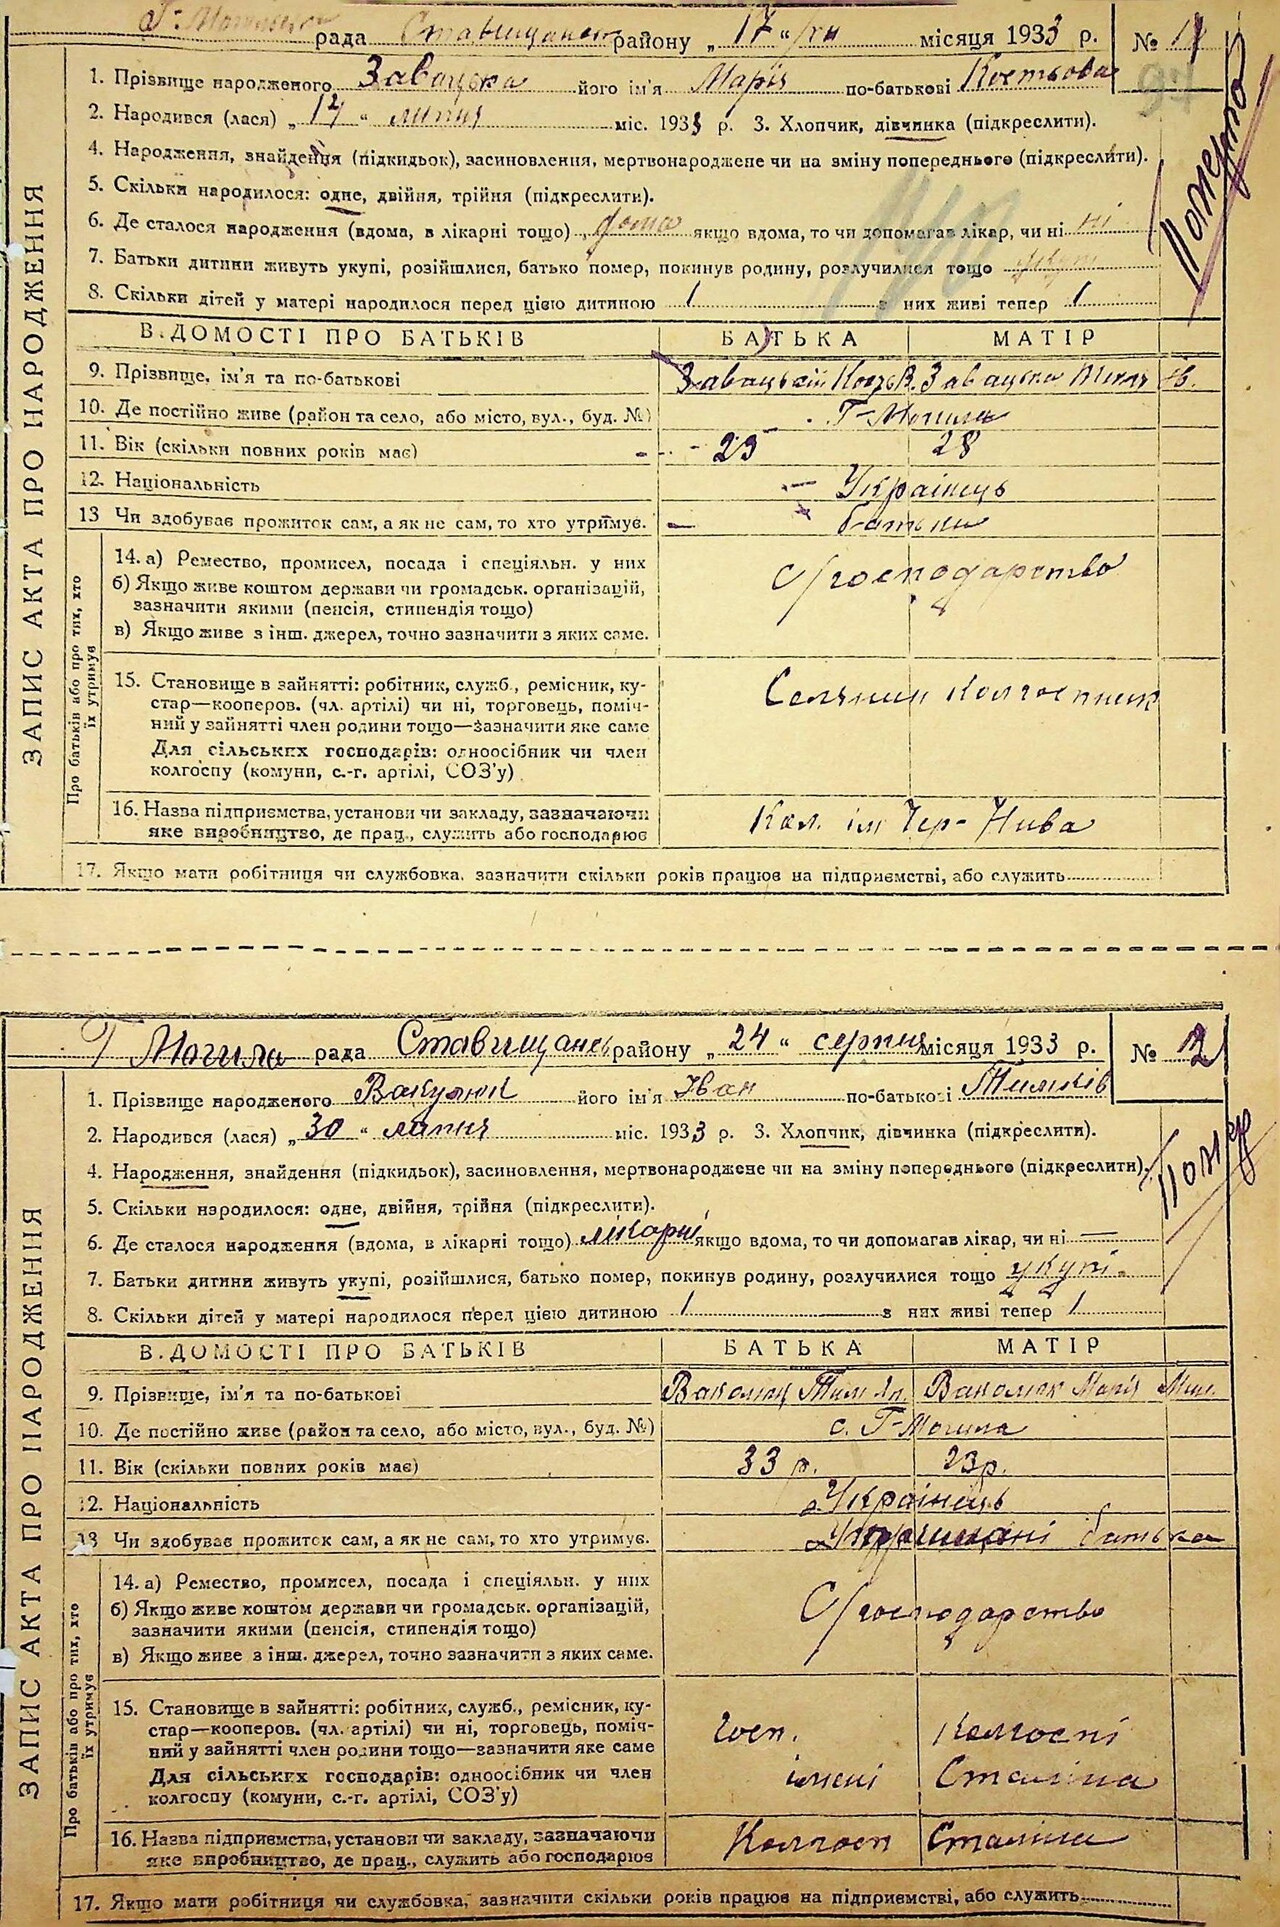 Г-Могильська рада Ставищанськ району „ 17 “ місяця 1933 р. № 11
97
1. Прізвище народженого Завацька його ім'я Марія по-батькові Костьова
2. Народився (лася) „ 17 “ липня міс. 1933 р. 3. Хлопчик, дівчинка (підкреслити).
4. Народження, знайдення (підкидьок), засиновлення, мертвонароджене чи на зміну попереднього (підкреслити).
5. Скільки народилося: одне, двійня, трійня (підкреслити).
6. Де сталося народження (вдома, в лікарні тощо) дома якщо вдома, то чи допомагав лікар, чи ні ні
7. Батьки дитини живуть укупі, розійшлися, батько помер, покинув родину, розлучилися тощо укупі
8. Скільки дітей у матері народилося перед цією дитиною 1 з них живі тепер 1
Померла
ЗАПИС АКТА ПРО НАРОДЖЕННЯ
В.ДОМОСТІ ПРО БАТЬКІВ БАТЬКА МАТІР
9. Прізвище, ім'я та по-батькові Завацький Кость В. Завацька
10. Де постійно живе (район та село, або місто, вул., буд. №) Г-Могила
11. Вік (скільки повних років має) 29 28
12. Національність Українець
13 Чи здобуває прожиток сам, а як не сам, то хто утримує. батьки
Про батьків або про тих, хто їх утримує
14. а) Ремество, промисел, посада і спеціяльн. у них С/господарство
б) Якщо живе коштом держави чи громадськ. організацій,
зазначити якими (пенсія, стипендія тощо)
в) Якщо живе з інш. джерел, точно зазначити з яких саме.
15. Становище в зайнятті: робітник, служб., ремісник, ку- Селянин Колгоспник
стар—кооперов. (чл. артілі) чи ні, торговець, поміч-
ний у зайнятті член родини тощо—зазначити яке саме
Для сільських господарів: одноосібник чи член
колгоспу (комуни, с.-г. артілі, СОЗ'у)
16. Назва підприємства, установи чи закладу, зазначаючи Кол. ім Чер- Нива
яке виробництво, де прац., служить або господарює
17. Якщо мати робітниця чи службовка, зазначити скільки років працює на підприємстві, або служить
Г Могила рада Ставищанськ району „ 24 “ серпня місяця 1933 р. № 12
1. Прізвище народженого Вакулюк його ім'я Іван по-батькові Тимків
2. Народився (лася) „ 30 “ липня міс. 1933 р. 3. Хлопчик, дівчинка (підкреслити).
4. Народження, знайдення (підкидьок), засиновлення, мертвонароджене чи на зміну попереднього (підкреслити).
5. Скільки народилося: одне, двійня, трійня (підкреслити).
6. Де сталося народження (вдома, в лікарні тощо) лікарні якщо вдома, то чи допомагав лікар, чи ні —
7. Батьки дитини живуть укупі, розійшлися, батько помер, покинув родину, розлучилися тощо укупі.
8. Скільки дітей у матері народилося перед цією дитиною 1 з них живі тепер 1
Помер
ЗАПИС АКТА ПРО НАРОДЖЕННЯ
В.ДОМОСТІ ПРО БАТЬКІВ БАТЬКА МАТІР
9. Прізвище, ім'я та по-батькові Ваколюк Тим Ваколюк Марія
10. Де постійно живе (район та село, або місто, вул., буд. №) с. Г-Могила
11. Вік (скільки повних років має) 33 р. 23 р.
12. Національність Українець
13 Чи здобуває прожиток сам, а як не сам, то хто утримує. батька
Про батьків або про тих, хто їх утримує
14. а) Ремество, промисел, посада і спеціяльн. у них С/господарство
б) Якщо живе коштом держави чи громадськ. організацій,
зазначити якими (пенсія, стипендія тощо)
в) Якщо живе з інш. джерел, точно зазначити з яких саме.
15. Становище в зайнятті: робітник, служб., ремісник, ку-
стар—кооперов. (чл. артілі) чи ні, торговець, поміч- госп. Колгоспі
ний у зайнятті член родини тощо—зазначити яке саме
Для сільських господарів: одноосібник чи член імені Сталіна
колгоспу (комуни, с.-г. артілі, СОЗ'у)
16. Назва підприємства, установи чи закладу, зазначаючи Колгосп Сталіна
яке виробництво, де прац., служить або господарює
17. Якщо мати робітниця чи службовка, зазначити скільки років працює на підприємстві, або служить